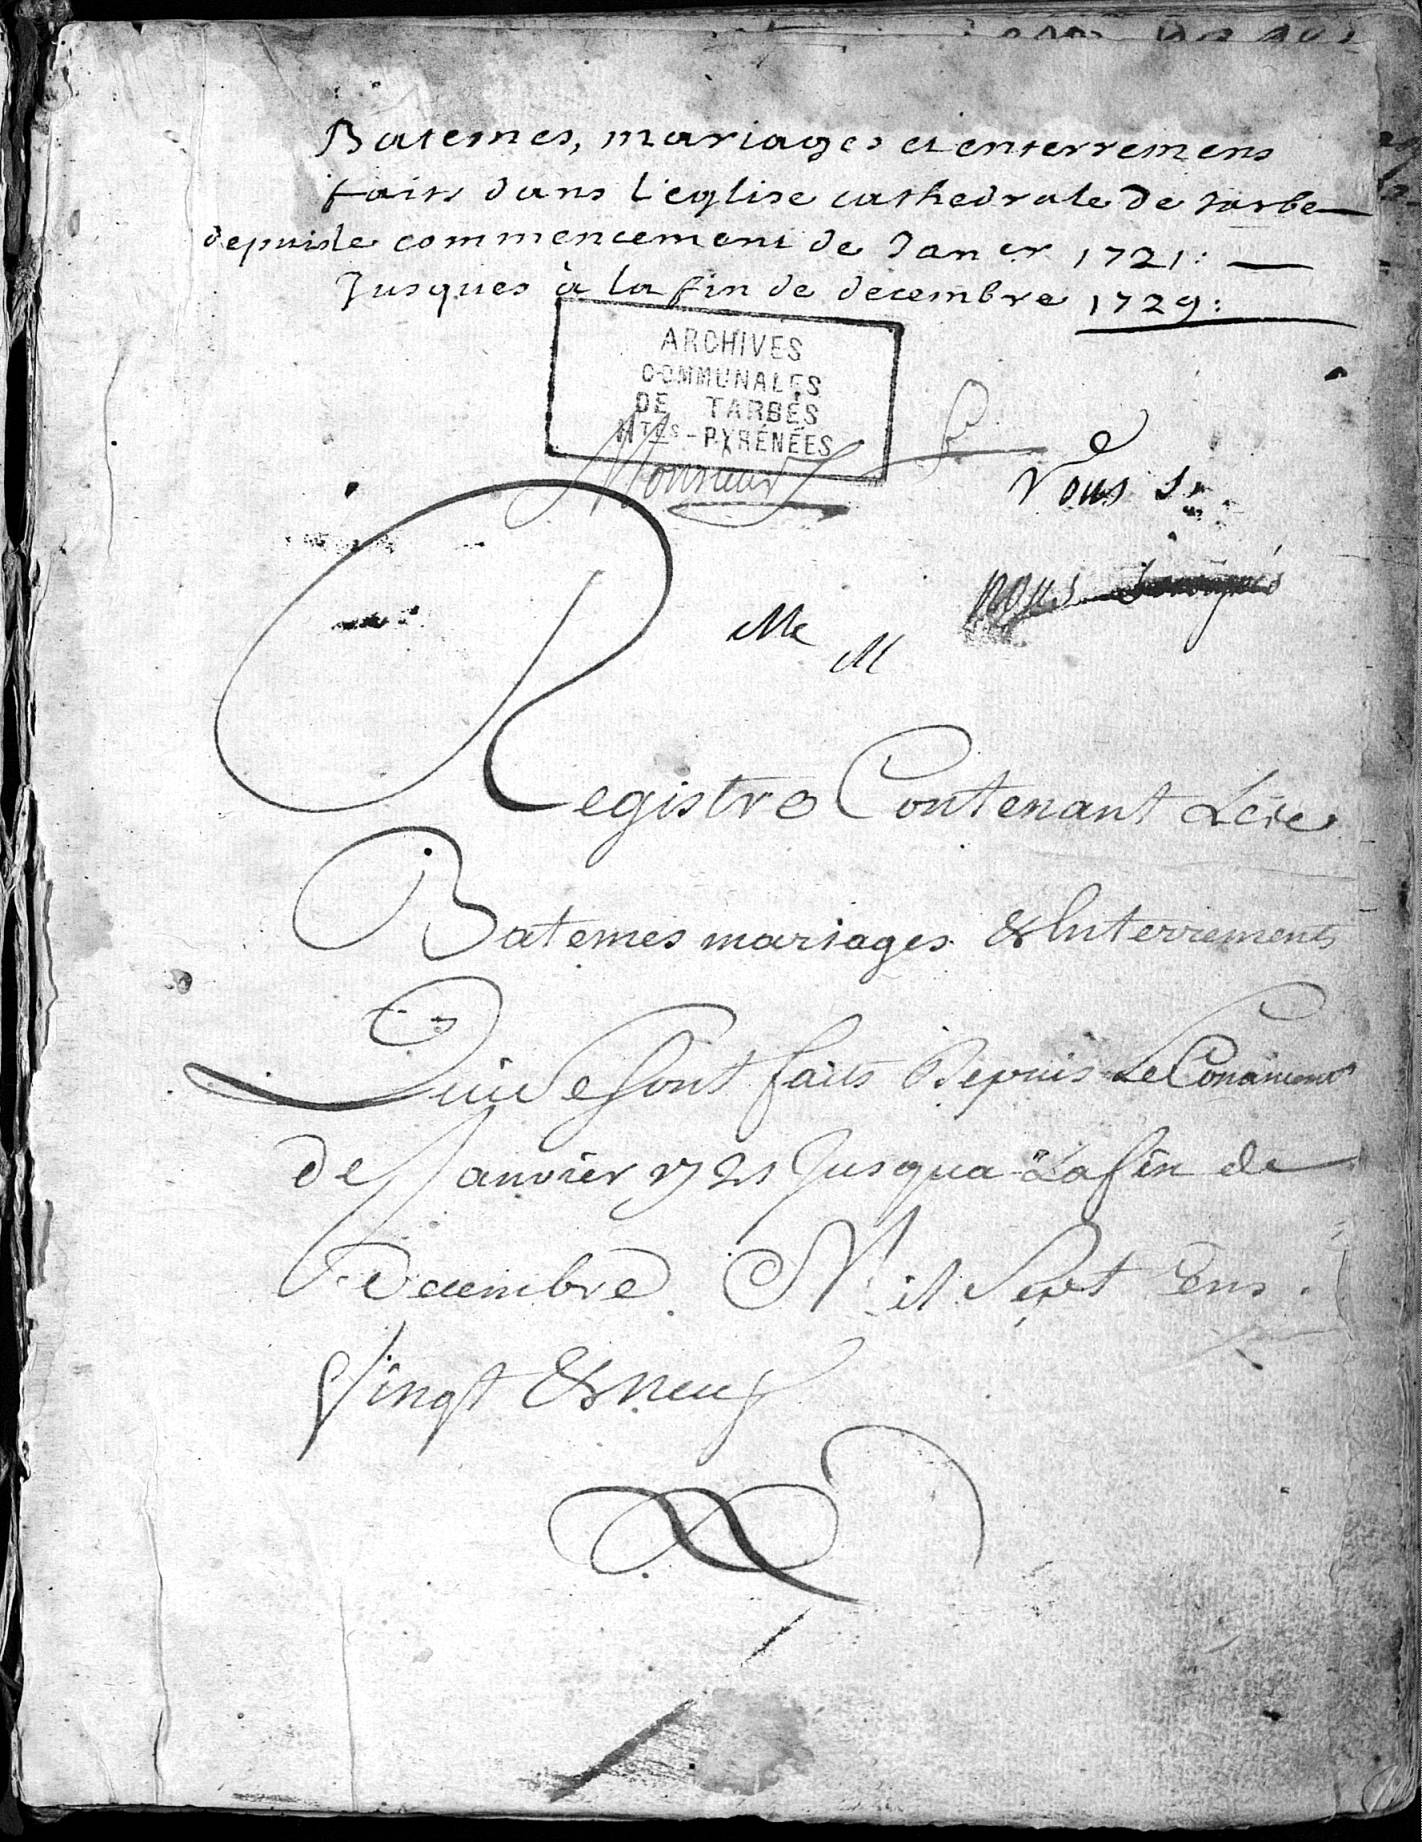 Batemes, mariages et enterremens
faits dans l'eglise cathedrale de tarbe
depuis le commencement de Jan er 1721:
Jusques à la fin de decembre 1729:
ARCHIVES
COMMUNALES
DE TARBES
HTES-PYRÉNÉES
Monsieur
Vous s
nous
Me
M
Registre Contenant Les
Batemes mariages & Enterrements
Qui se sont faits Depuis Le
de Janvier 1721 Jusqua La fin de
Decembre Mil Sept Cens
Vingt & neuf